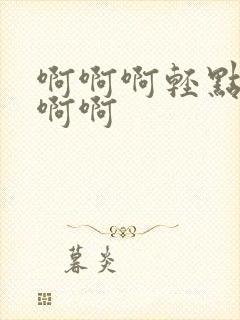 啊啊啊轻點
啊啊
暮炎